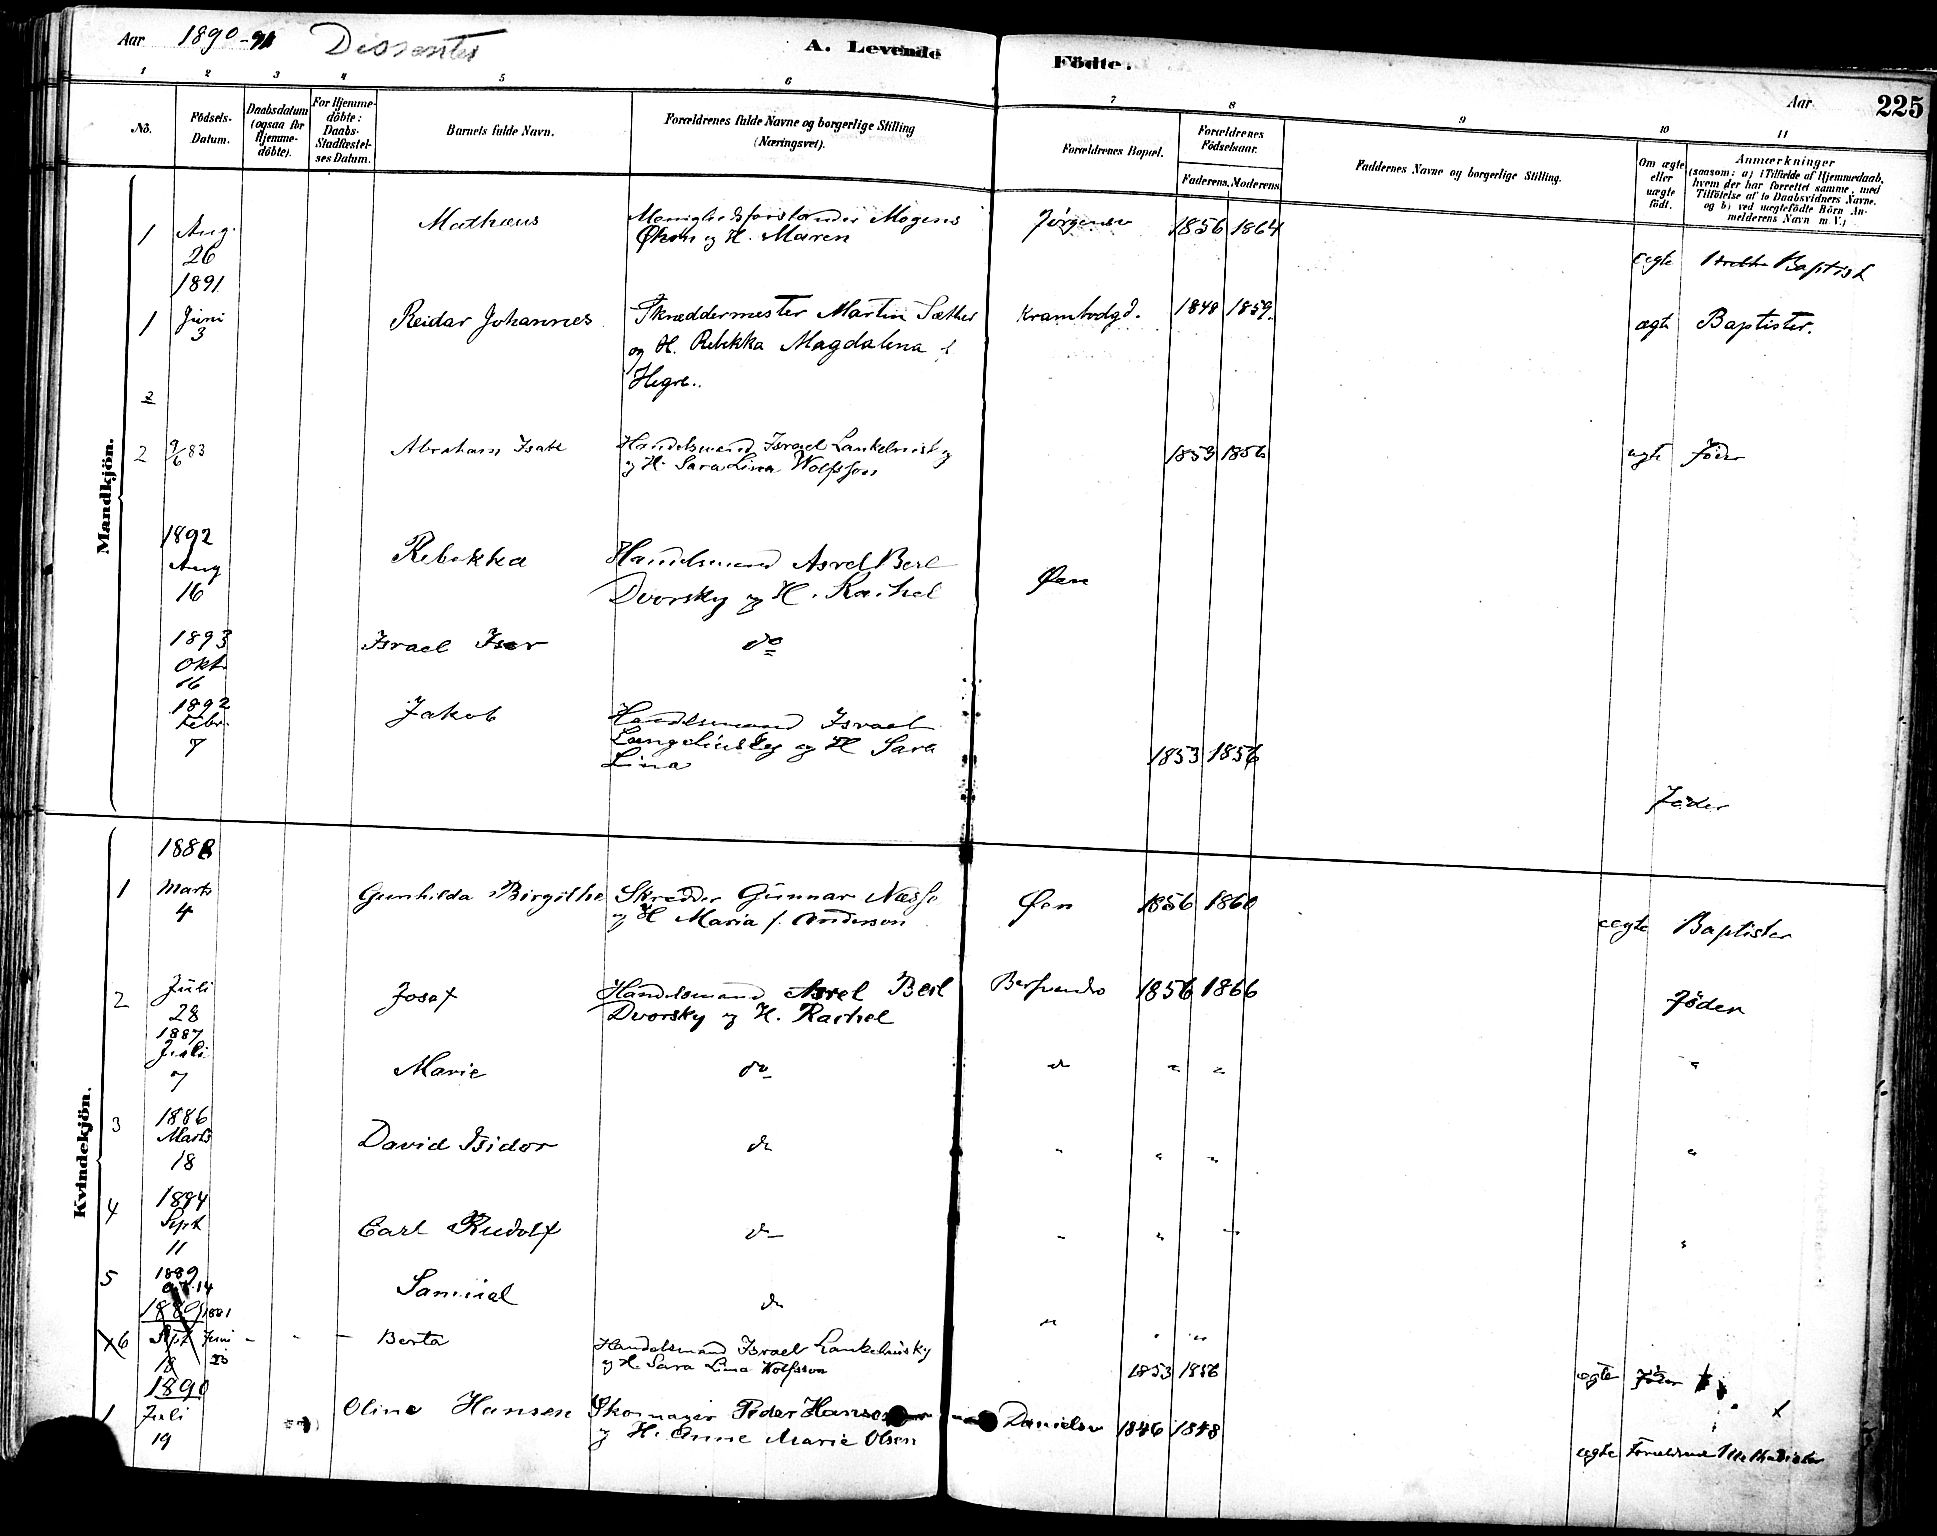 Aar 1890-91 Dissenter A. Levende Födte. Aar 225
1 2 3 4 5 6 7 8 9 10 11
No. Födsels-Datum. Daabsdatum (ogsaa for Hjemme-döbte). For Hjemme-döbte: Daabs-Stadfæstel-ses Datum. Barnets fulde Navn. Forældrenes fulde Navne og borgerlige Stilling (Næringsvei). Forældrenes Bopæl. Forældrenes Födselsaar. Faderens. Moderens. Faddernes Navne og borgerlige Stilling. Om ægte eller uægte födt. Anmærkninger (saasom: a) i Tilfælde af Hjemmedaab, hvem der har forrettet samme, med Tilföielse af to Daabsvidners Navne, og b) ved uægtefödte Börn Anmelderens Navn m.V.)
Mandkjön.
1 Aug. 26 Mathæus Menighedsforstander Mogens
og H. Maren Jørgensv 1856 1864 ægte Baptist
1891
1 Juni 3 Reidar Johannes Skræddermester Martin Sæther Krambodgd. 1848 1859. ægte Baptister.
og H. Rebekka Magdalena f.
Hegre.
2
2 9/6 83 Abraham Isak Handelsmand Israel
og H. Sara Lina Wolfsson 1853 1856 ægte Jøder
1892
Aug 16 Rebekka Handelsmand Asrel Berl
Dvorsky og H. Rachel Øen
1893
Okt. 16 Israel Iser do
1892
Febr. 7 Jakob Handelsmand Israel
og H Sara
Lina 1853 1856
Jøder
Kvindekjön.
1888
1 Marts 4 Gunhilda Birgithe Skrædder Gunnar Næss Øen 1856 1860 ægte Baptister
og H Maria f. Anderson
2 Juli 28 Josef Handelsmand Asrel Berl 1856 1866 Jøder
Dvorsky og H. Rachel
1887
Juli 7 Marie do d " " "
3 1886
Marts 18 David Isidor do " " " "
4 1884
Sept 11 Carl Rudolf do " " " "
5 1889
14 Samuel do "
1881
6 Juni 23 Berta Handelsmand Israel Lankelinsky " "
og H. Sara Lina Wolfsson 1853 1856 ægte Jøder
1890
1 Juli 19 Oline Hansen Skomager Peder Hansen Danielsv 1846 1848
og H. Anne Marie Olsen ægte Forældrene Methodister